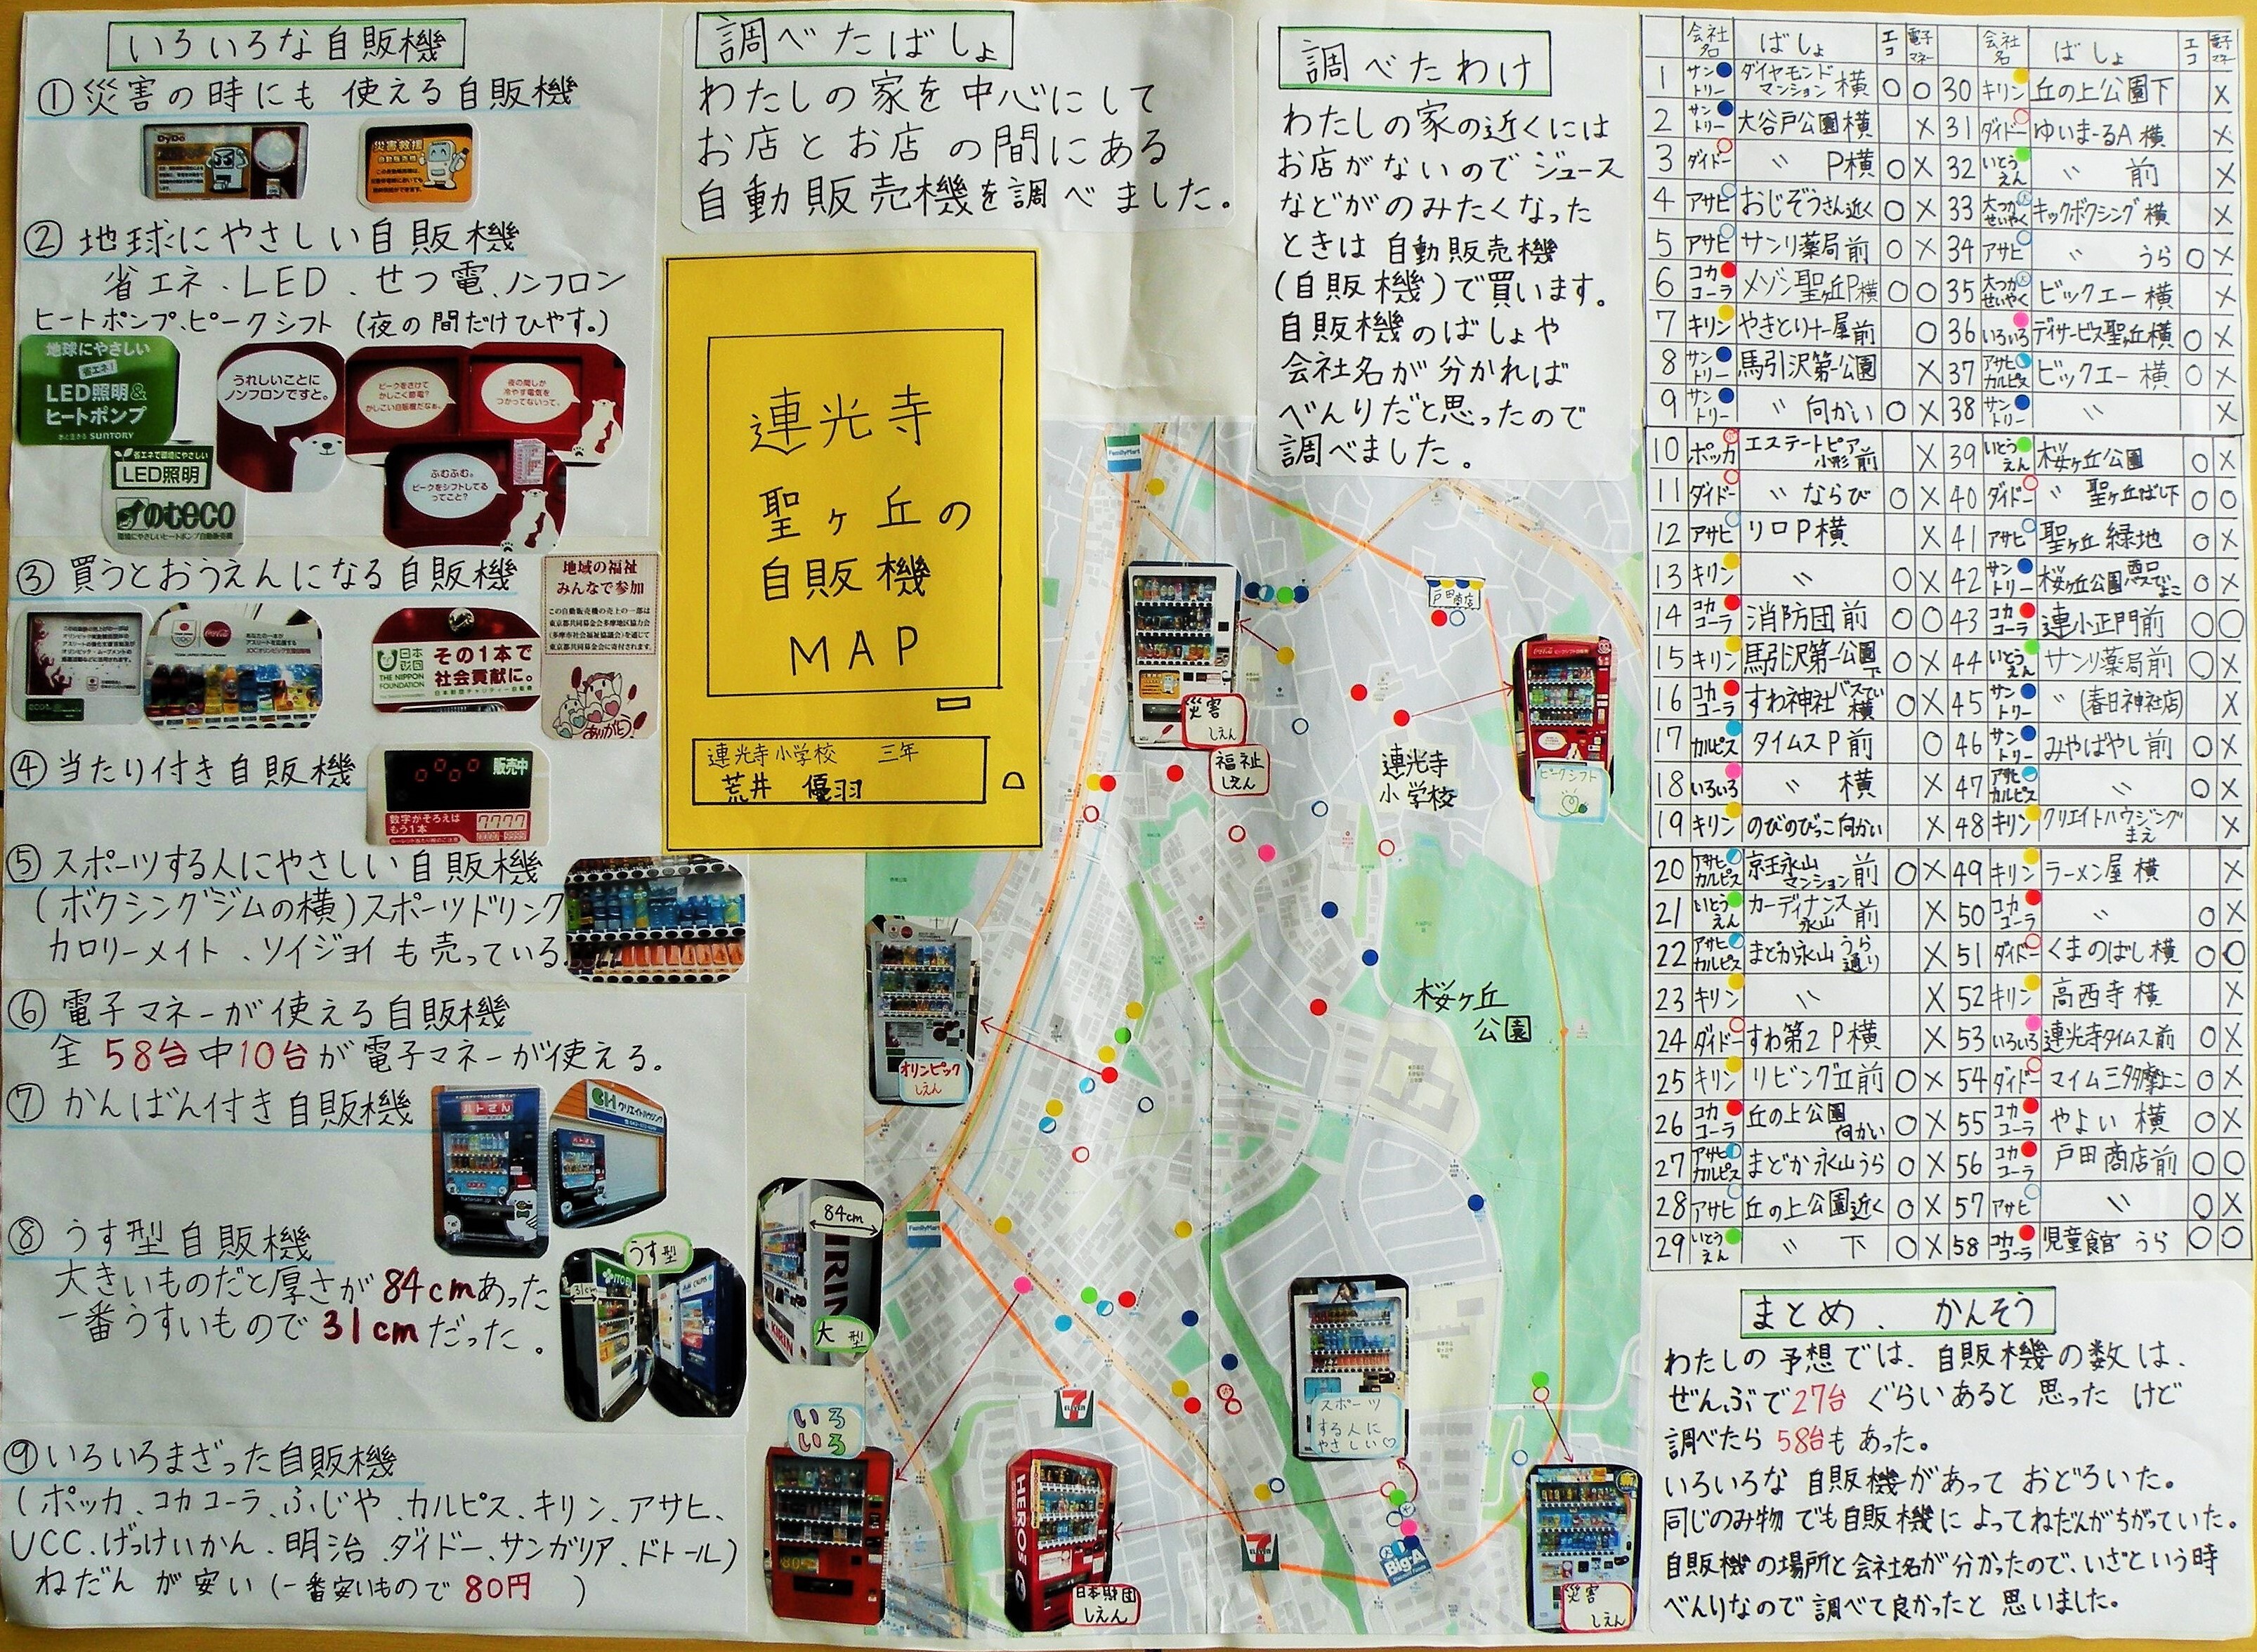 いろいろな自販機
①災害の時にも 使える自販機
DyDo
災害救援
自動販売機
②地球にやさしい自販機
省エネ、LED、せつ電、ノンフロン
ヒートポンプ、ピークシフト (夜の間だけひやす。)
地球にやさしい
省エネ!
LED照明&
ヒートポンプ
SUNTORY
うれしいことに
ノンフロンですと。
ピークをさけて
かしこく節電?
かしこい自販機だなぁ。
夜の間しか
冷やす電気を
つかってないって。
省エネで環境にやさしい
LED照明
のむeco
環境にやさしいヒートポンプ自動販売機
ふむふむ。
ピークをシフトしてる
ってこと?
③買うとおうえんになる自販機
日本財団
THE NIPPON
FOUNDATION
その1本で
社会貢献に。
地域の福祉
みんなで参加
この自動販売機の売上の一部は
東京都共同募金会多摩地区協力会
(多摩市社会福祉協議会)を通じて
東京都共同募金会に寄付されます。
ありがとう
④当たり付き自販機
販売中
数字がそろえば
もう1本
7777
⑤スポーツする人にやさしい自販機
(ボクシングジムの横)スポーツドリンク
カロリーメイト、ソイジョイも売っている。
⑥電子マネーが使える自販機
全58台中10台が電子マネーが使える。
⑦かんばん付き自販機
クリエイトハウジング
⑧うす型自販機
大きいものだと厚さが84cmあった
一番うすいもので31cmだった。
うす型
31cm
ITOEN
⑨いろいろまざった自販機
(ポッカ、コカコーラ、ふじや、カルピス、キリン、アサヒ、
UCC、げっけいかん、明治、ダイドー、サンガリア、ドトール)
ねだんが安い(一番安いもので80円)
調べたばしょ
わたしの家を中心にして
お店とお店の間にある
自動販売機を調べました。
連光寺
聖ヶ丘の
自販機
MAP
連光寺小学校 三年
荒井 優羽
調べたわけ
わたしの家の近くには
お店がないのでジュース
などがのみたくなった
ときは自動販売機
(自販機)で買います。
自販機のばしょや
会社名が分かれば
べんりだと思ったので
調べました。
FamilyMart
戸田商店
災害
しえん
福祉
しえん
連光寺
小学校
ピークシフト
桜ヶ丘
公園
オリンピック
しえん
84cm
KIRIN
大型
FamilyMart
7 ELEVEN
いろ
いろ
HEROS
日本財団
しえん
スポーツ
する人に
やさしい♡
7 ELEVEN
BigA
災害
しえん
会社名 ばしょ エコ 電子マネー 会社名 ばしょ エコ 電子マネー
1 サントリー ダイヤモンドマンション横 ○ ○ 30 キリン 丘の上公園下 ×
2 サントリー 大谷戸公園横 × 31 ダイドー ゆいまーるA横 ×
3 ダイドー 〃 P横 ○ × 32 いとうえん 〃 前 ×
4 アサヒ おじぞうさん近く ○ × 33 大つかせいやく キックボクシング横 ×
5 アサヒ サンリ薬局前 ○ × 34 アサヒ 〃 うら ○ ×
6 コカコーラ メゾン聖ヶ丘P横 ○ ○ 35 大つかせいやく ビックエー横 ×
7 キリン やきとり十一屋前 ○ 36 いろいろ デイサービス聖ヶ丘横 ○ ×
8 サントリー 馬引沢第一公園 × 37 アサヒカルピス ビックエー横 ○ ×
9 サントリー 〃 向かい ○ × 38 サントリー 〃 ×
10 ポッカ エステートピア小形前 × 39 いとうえん 桜ヶ丘公園 ○ ×
11 ダイドー 〃 ならび ○ × 40 ダイドー 〃 聖ヶ丘ばし下 ○ ○
12 アサヒ リロP横 × 41 アサヒ 聖ヶ丘緑地 ○ ×
13 キリン 〃 ○ × 42 サントリー 桜ヶ丘公園 よこ ○ ×
14 コカコーラ 消防団前 ○ ○ 43 コカコーラ 連小正門前 ○ ○
15 キリン 馬引沢第一公園下 ○ × 44 いとうえん サンリ薬局前 ○ ×
16 コカコーラ すわ神社バスてい横 ○ × 45 サントリー 〃 (春日神社店) ×
17 カルピス タイムスP前 ○ 46 サントリー みやばやし前 ○ ×
18 いろいろ 〃 横 × 47 アサヒカルピス 〃 ○ ×
19 キリン のびのびっこ向かい × 48 キリン クリエイトハウジングまえ ×
20 アサヒカルピス 京王永山マンション前 ○ × 49 キリン ラーメン屋横 ×
21 いとうえん カーディナンス永山前 × 50 コカコーラ 〃 ○ ×
22 アサヒカルピス まどか永山うら通り × 51 ダイドー くまのばし横 ○ ○
23 キリン 〃 × 52 キリン 高西寺横 ×
24 ダイドー すわ第2P横 × 53 いろいろ 連光寺タイムス前 ○ ×
25 キリン リビングⅡ前 ○ × 54 ダイドー マイム三多摩よこ ○ ×
26 コカコーラ 丘の上公園向かい ○ × 55 コカコーラ やよい横 ○ ×
27 アサヒカルピス まどか永山うら ○ × 56 コカコーラ 戸田商店前 ○ ○
28 アサヒ 丘の上公園近く ○ × 57 アサヒ 〃 ○ ×
29 いとうえん 〃 下 ○ × 58 コカコーラ 児童食官うら ○ ○
まとめ、かんそう
わたしの予想では、自販機の数は、
ぜんぶで27台ぐらいあると思ったけど
調べたら58台もあった。
いろいろな自販機があっておどろいた。
同じのみ物でも自販機によってねだんがちがっていた。
自販機の場所と会社名が分かったので、いざという時
べんりなので調べて良かったと思いました。